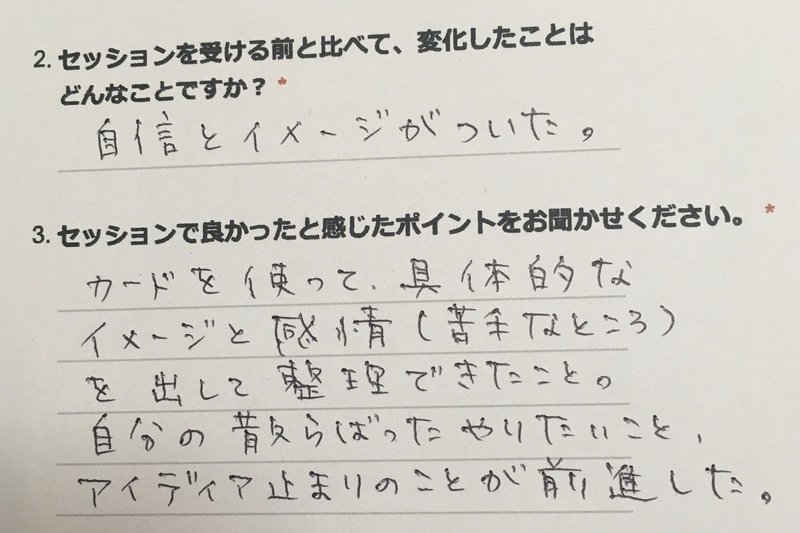 2. セッションを受ける前と比べて、変化したことは
どんなことですか？*
自信とイメージがついた。
3. セッションで良かったと感じたポイントをお聞かせください。*
カードを使って、具体的な
イメージと感情(苦手なところ)
を出して整理できたこと。
自分の散らばったやりたいこと、
アイディア止まりのことが前進した。